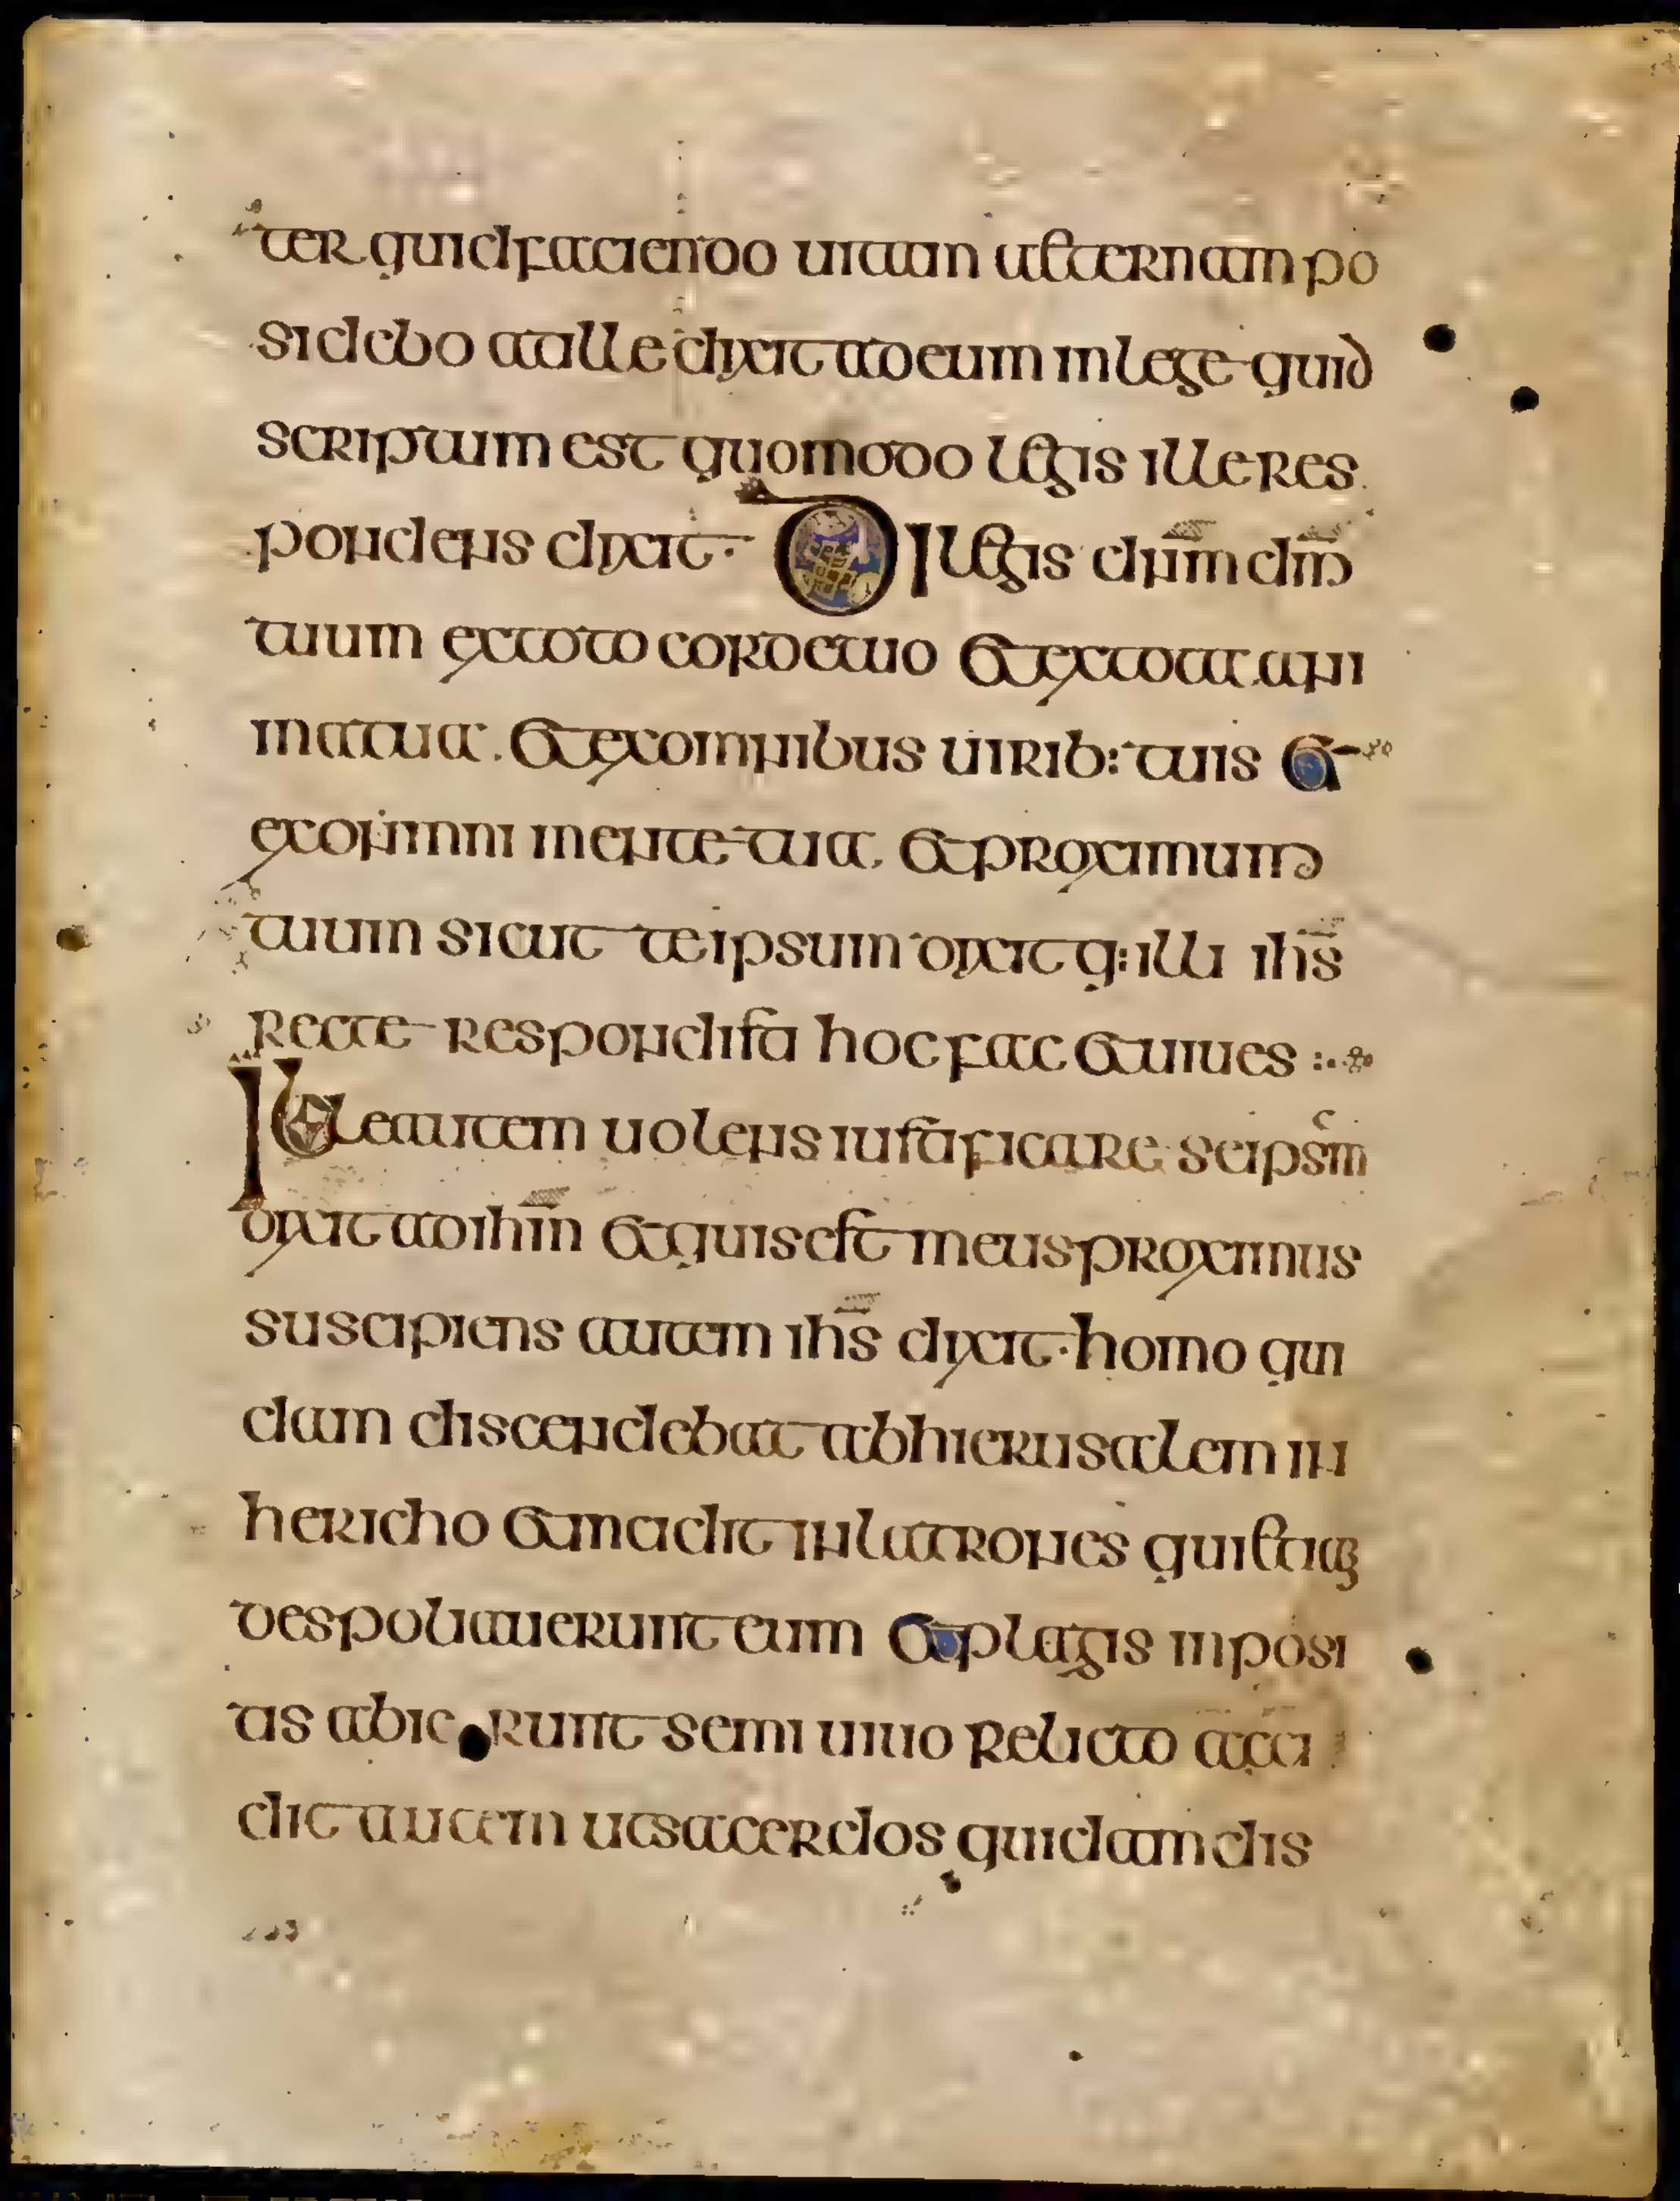 ter quid faciendo uitam aeternam po
sidebo at ille dixit ad eum in lege quid
scriptum est quomodo legis ille res
pondens dixit· Dileges dnm dm
tuum ex toto corde tuo et ex tota ani
ma tua. et ex omnibus uirib: tuis et
ex omni mente tua. et proximum
tuum sicut te ipsum dixit q: illi ihs
recte respondisti hoc fac et uiues :·
Ille autem uolens iustificare seipsm
dixit ad ihm et quis est meus proximus
suscipiens autem ihs dixit· homo qui
dam discendebat ab hierusalem in
hericho et incidit in latrones qui etiaq;
despoliauerunt eum et plagis inposi
tis abierunt semi uiuo relicto acci
dit autem ut sacerdos quidam dis